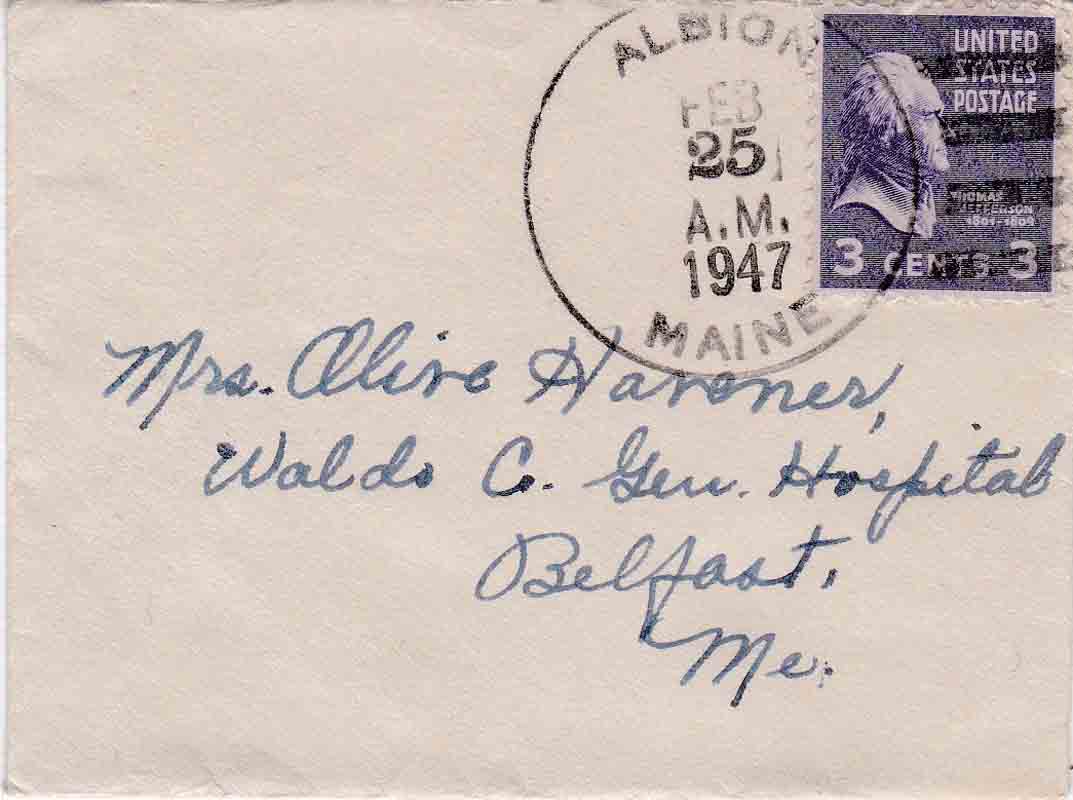 ALBION
FEB
25
A.M.
1947
MAINE
UNITED
STATES
POSTAGE
THOMAS
JEFFERSON
1801-1809
3 CENTS 3
Mrs. Olive Havener,
Waldo C. Gen. Hospital
Belfast,
Me.